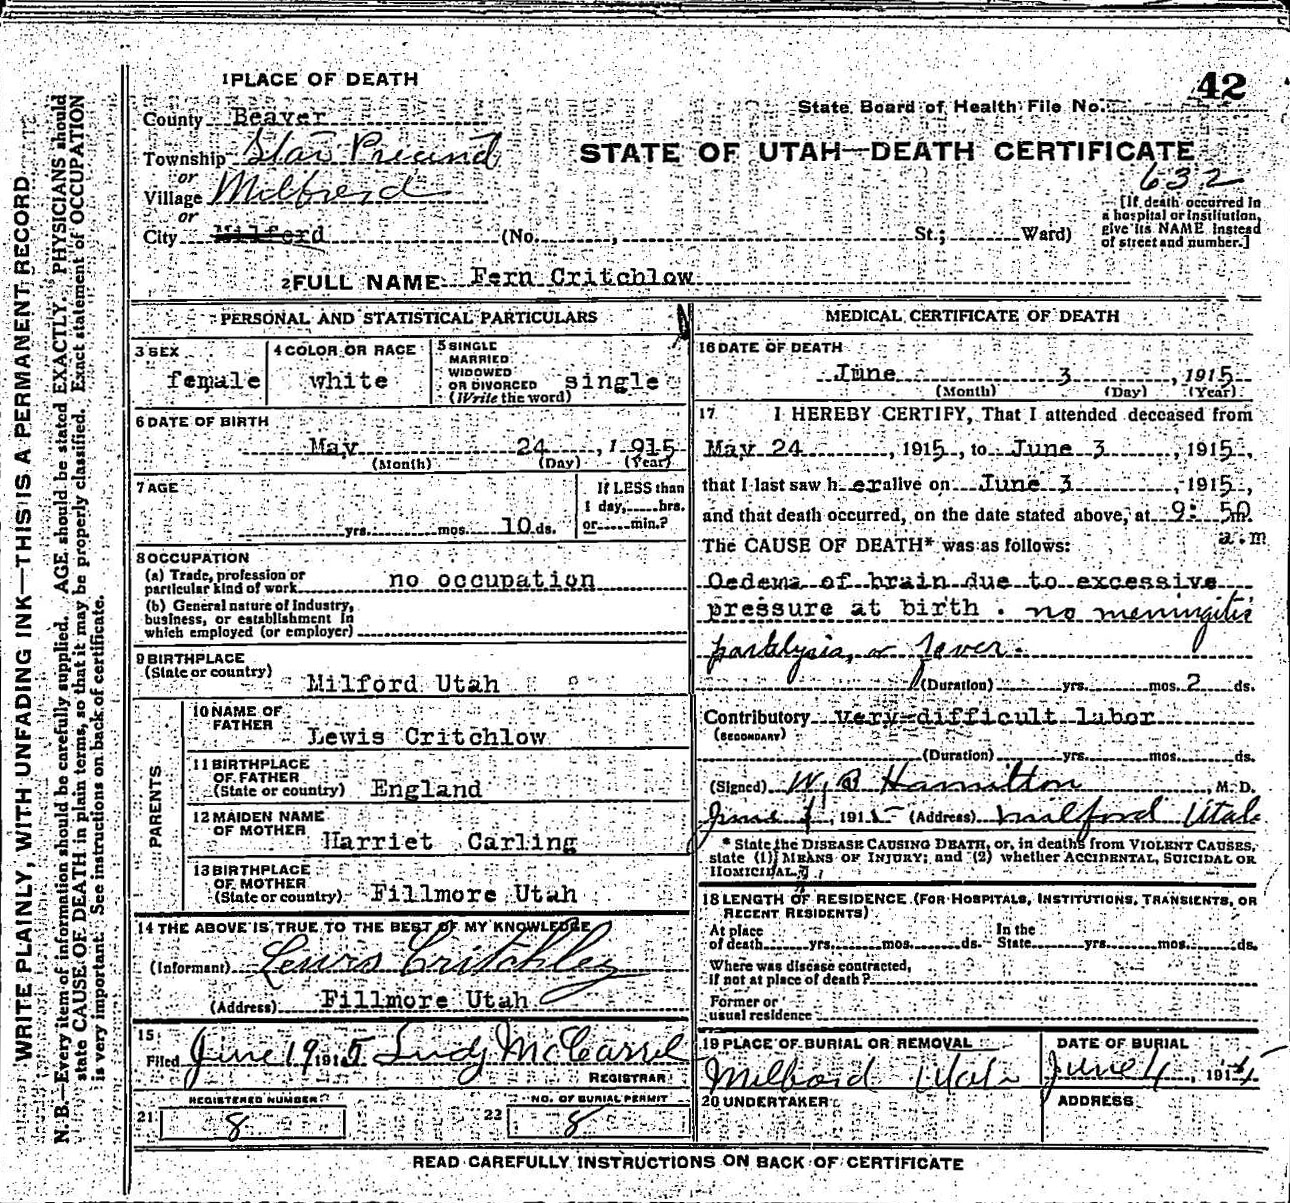 WRITE PLAINLY, WITH UNFADING INK—THIS IS A PERMANENT RECORD
N. B.—Every item of information should be carefully supplied. AGE should be stated EXACTLY. PHYSICIANS should
state CAUSE OF DEATH in plain terms, so that it may be properly classified. Exact statement of OCCUPATION
is very important. See instructions on back of certificate.
1 PLACE OF DEATH
42
State Board of Health File No.
County Beaver
Township Star Precinct
STATE OF UTAH—DEATH CERTIFICATE
or
Village Milford
632
or
City Milford (No. , St.; Ward)
[If death occurred in
a hospital or institution,
give its NAME instead
of street and number.]
2 FULL NAME Fern Critchlow
PERSONAL AND STATISTICAL PARTICULARS
3 SEX
female
4 COLOR OR RACE
white
5 SINGLE
MARRIED
WIDOWED
OR DIVORCED
(Write the word)
single
6 DATE OF BIRTH
May 24, 1915
(Month) (Day) (Year)
7 AGE
yrs. mos. 10 ds.
If LESS than
1 day, hrs.
or min.?
8 OCCUPATION
(a) Trade, profession or
particular kind of work no occupation
(b) General nature of Industry,
business, or establishment in
which employed (or employer)
9 BIRTHPLACE
(State or country)
Milford Utah
PARENTS
10 NAME OF
FATHER
Lewis Critchlow
11 BIRTHPLACE
OF FATHER
(State or country) England
12 MAIDEN NAME
OF MOTHER
Harriet Carling
13 BIRTHPLACE
OF MOTHER
(State or country) Fillmore Utah
14 THE ABOVE IS TRUE TO THE BEST OF MY KNOWLEDGE
(Informant) Lewis Critchley
(Address) Fillmore Utah
15
Filed June 19 1915
REGISTRAR
REGISTERED NUMBER
21 8
NO. OF BURIAL PERMIT
22 8
MEDICAL CERTIFICATE OF DEATH
16 DATE OF DEATH
June 3, 1915
(Month) (Day) (Year)
17 I HEREBY CERTIFY, That I attended deceased from
May 24, 1915, to June 3, 1915,
that I last saw her alive on June 3, 1915,
and that death occurred, on the date stated above, at 9: 50 m.
a.m
The CAUSE OF DEATH* was as follows:
Oedema of brain due to excessive
pressure at birth. no meningitis
paralysis, or fever.
(Duration) yrs. mos. 2 ds.
Contributory Very difficult labor
(SECONDARY)
(Duration) yrs. mos. ds.
(Signed) W. B. Hamilton, M. D.
June, 1915 (Address) Milford Utah
* State the DISEASE CAUSING DEATH, or, in deaths from VIOLENT CAUSES,
state (1) MEANS OF INJURY; and (2) whether ACCIDENTAL, SUICIDAL OR
HOMICIDAL.
18 LENGTH OF RESIDENCE (FOR HOSPITALS, INSTITUTIONS, TRANSIENTS, OR
RECENT RESIDENTS)
At place
of death yrs. mos. ds.
In the
State yrs. mos. ds.
Where was disease contracted,
if not at place of death?
Former or
usual residence
19 PLACE OF BURIAL OR REMOVAL
Milford Utah
DATE OF BURIAL
June 4, 191
20 UNDERTAKER
ADDRESS
READ CAREFULLY INSTRUCTIONS ON BACK OF CERTIFICATE